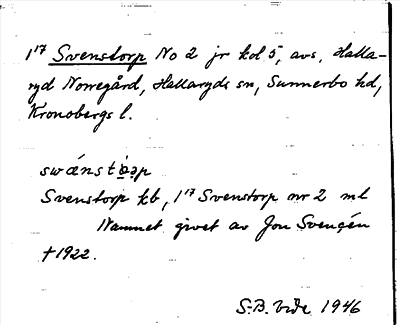 1¹⁷ Svenstorp No 2 jr kol 5, avs. Halla-
ryd Norregård, Hallaryds sn, Sunnerbo hd,
Kronobergs l.
Svenstorp kb, 1¹⁷ Svenstorp nr 2 ml
Namnet givet av Jon Svengén
†1922.
S.B. Vide 1946